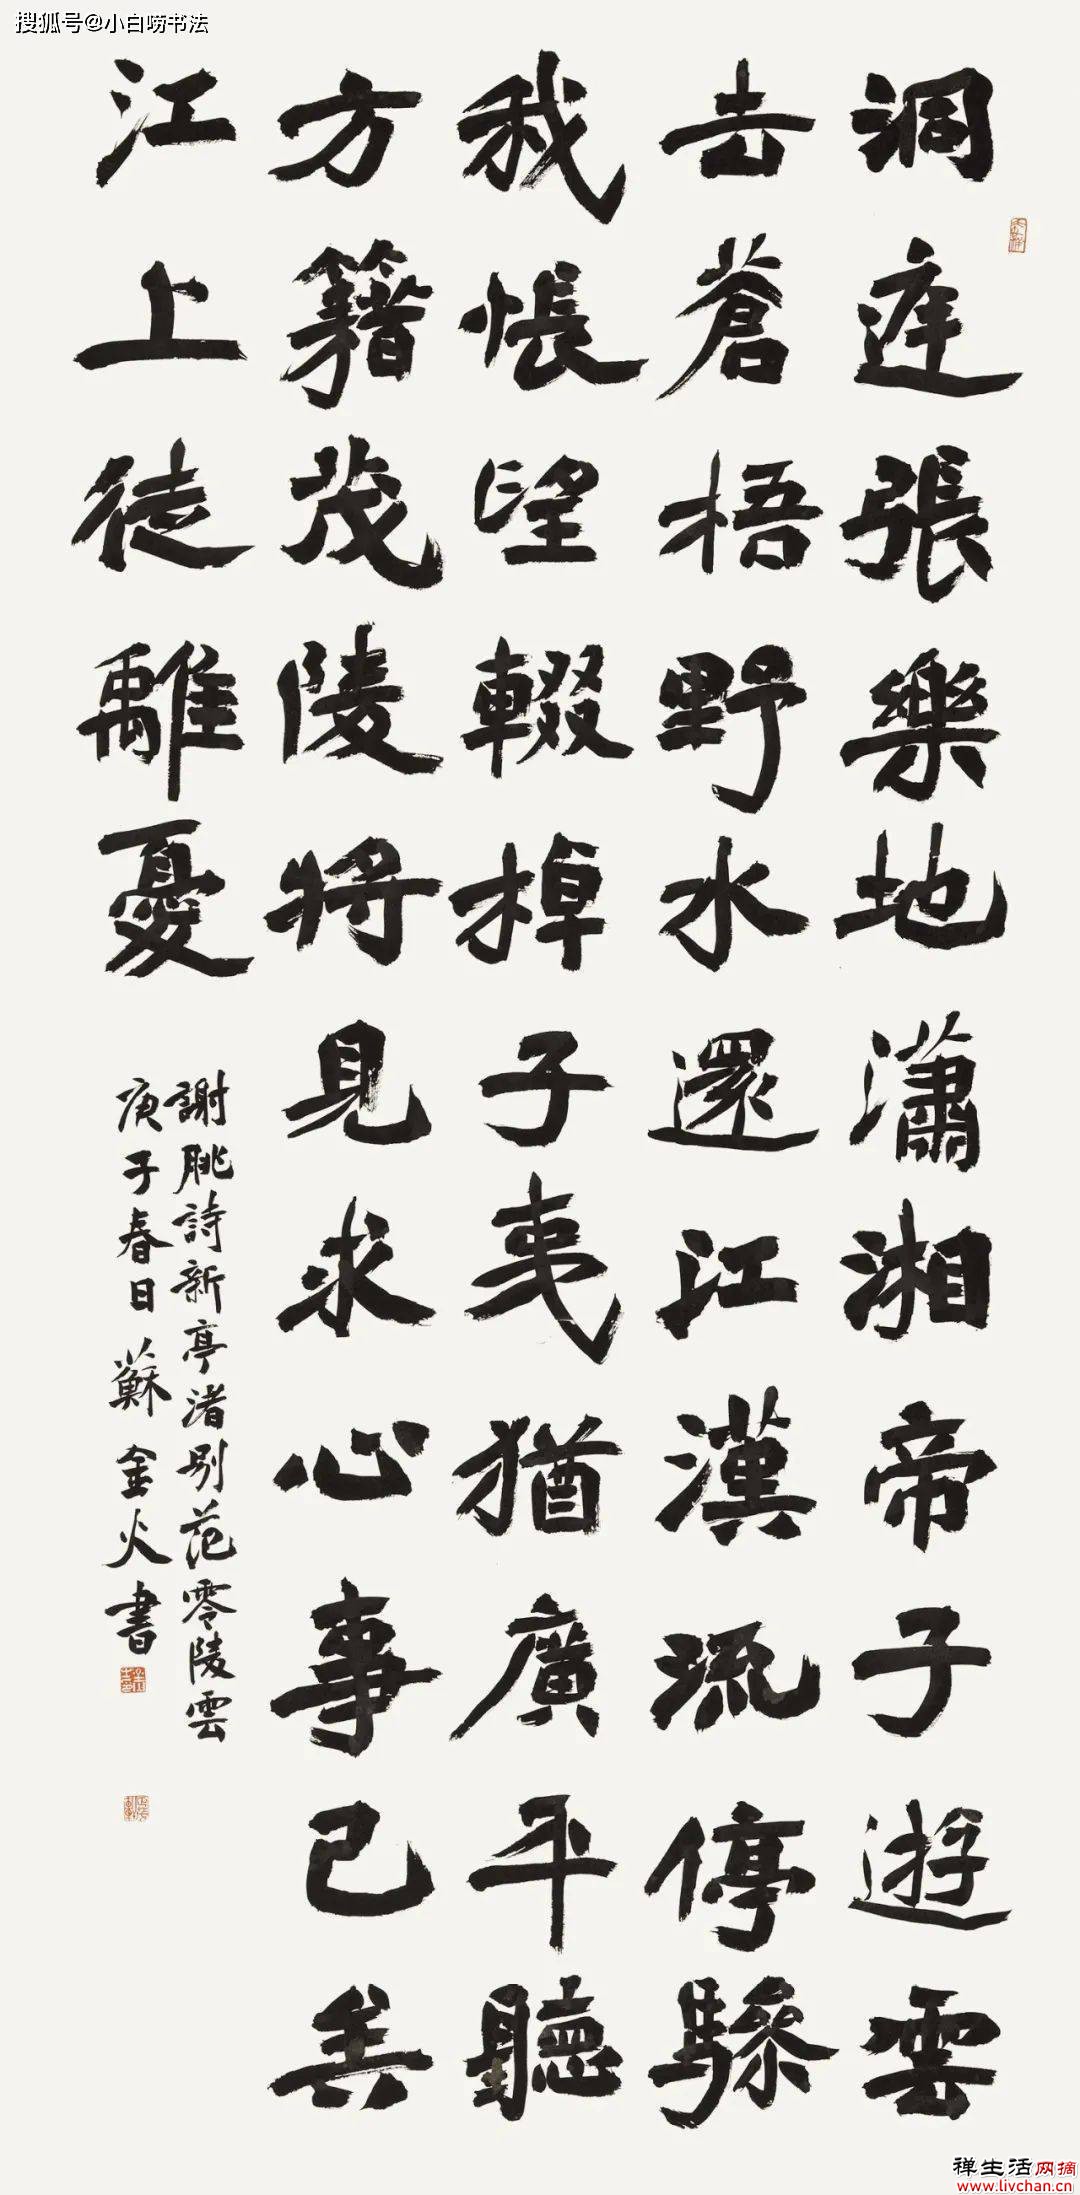 搜狐号@小白唠书法
洞庭張樂地瀟湘帝子遊雲
去蒼梧野水還江漢流停驂
我悵望輟棹子夷猶廣平聽
方籍茂陵將見求心事已矣
江上徒離憂
謝朓詩新亭渚别范零陵雲
庚子春日蘇金火書
禅生活网摘
www.livchan.cn